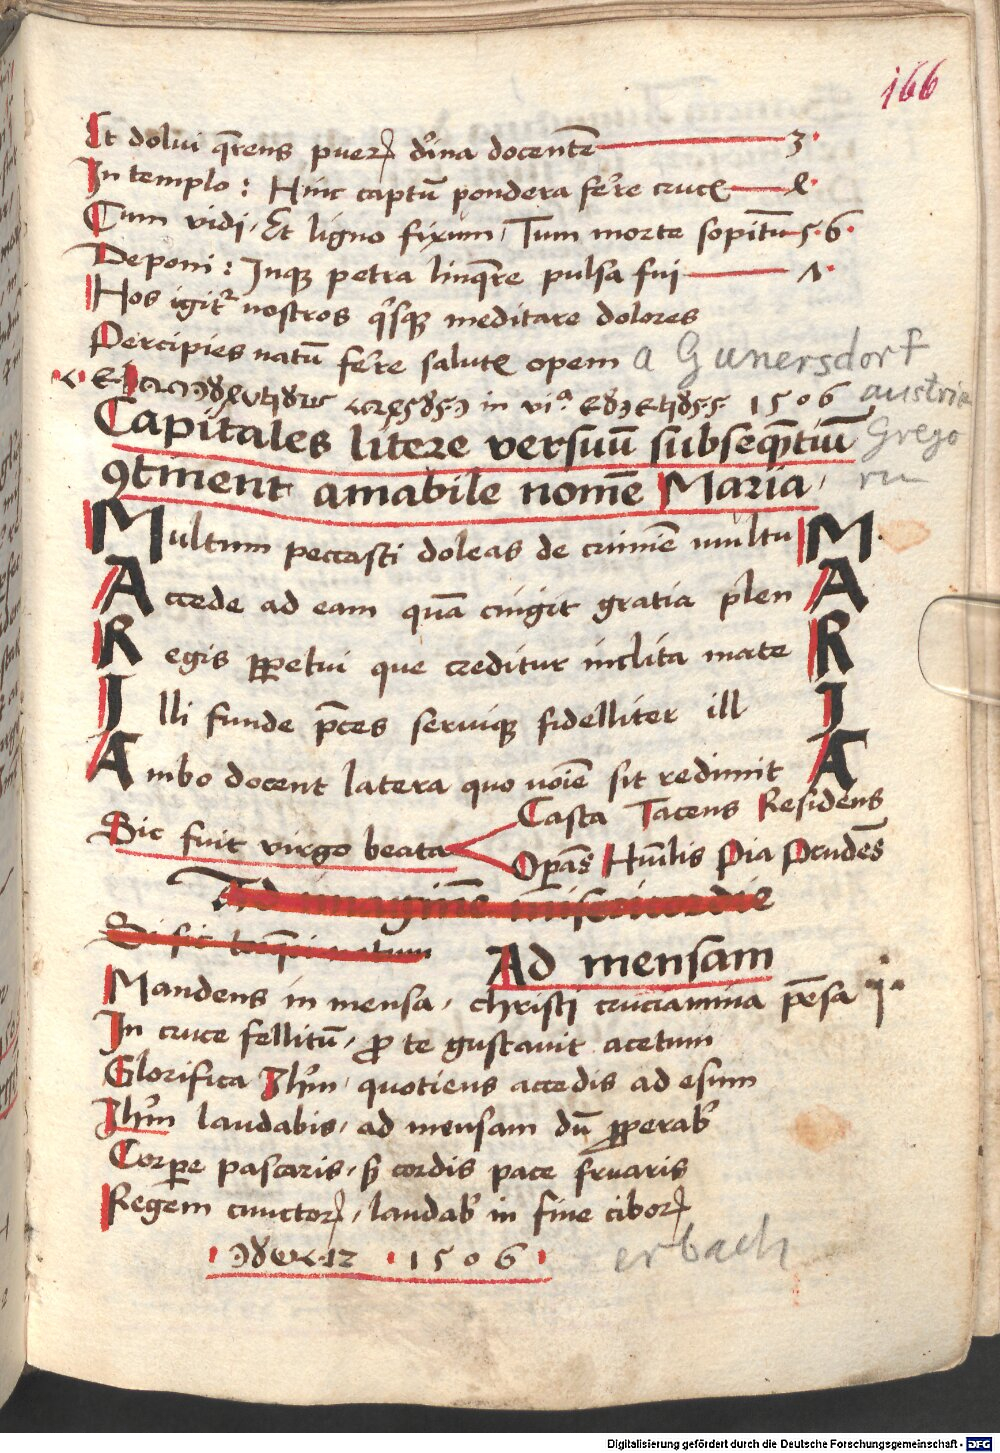 166
Et dolui q̄rens pueꝝ dīna docentē 3·
In templo: Hinc captū pondera fer̄e crucē
Cum vidi, Et ligno fixum, Tum morte sopitū 5·6·
Deponi: Inqꝫ petra linq̄re pulsa fui
Hos igit̄ nostros qͥsqꝫ meditare dolores
Percipies natū fer̄e salutē opem a Gunersdorf
in vi.ᵃ 1506 austria
Capitales litere versuū subseq̄ntiū Grego
ꝯtinent amabile nomē Maria, rii
Multum peccasti doleas de crimē multu M
Accede ad eam quā cingit gratia plen A
Regis ꝑpetui que creditur inclita mate R
Illi funde p̄ces seruiqꝫ fidelliter ill I
Ambo docent latera quo noīe sit redimit A
Casta Tacens Residens
Sic fuit virgo beata
Oꝑās Hūilis Pia Prudēs
Ad imaginē misericordie
Ad mensam
Mandens in mensa, christi cruciamina pēsa
In cruce fellitū, ꝓ te gustauit acetum
Glorifica Ihm̄, quotiens accedis ad esum
Ihm̄ laudabis, ad mensam dū ꝓperabꝰ
Corꝑe pascaris, sꝫ cordis pace fruaris
Regem cunctoꝝ, laudabꝰ in fine ciboꝝ
·1506· erbach
Digitalisierung gefördert durch die Deutsche Forschungsgemeinschaft - DFG